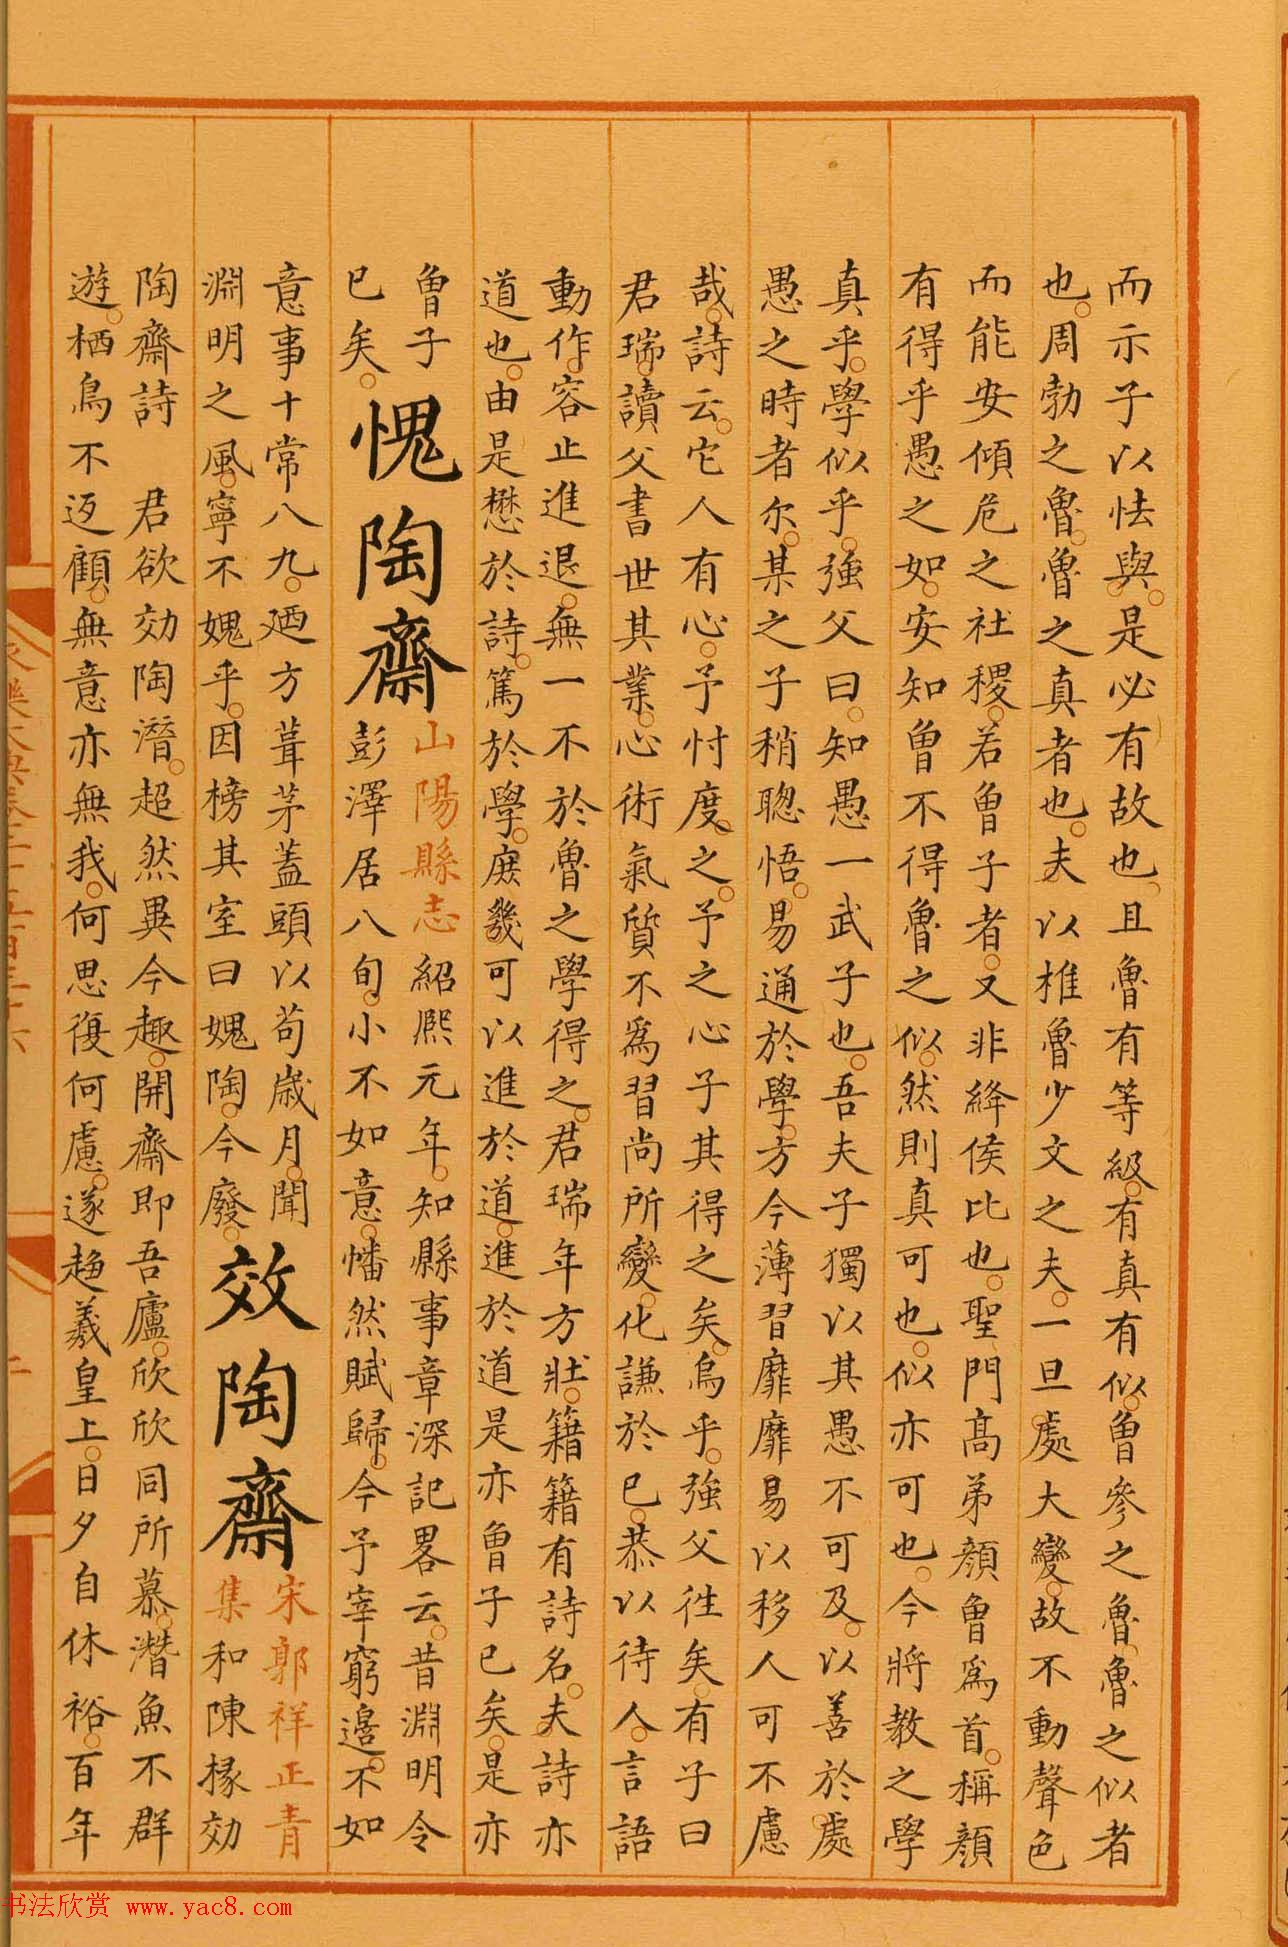 而示子以怯與是必有故也且魯有等級有真有似曾參之魯魯之似者
也周勃之魯魯之真者也夫以椎魯少文之夫一旦處大變故不動聲色
而能安傾危之社稷若曾子者又非絳侯比也聖門高弟顏曾為首稱顏
有得乎愚之如安知曾不得魯之似然則真可也似亦可也今將教之學
真乎學似乎強父曰知愚一武子也吾夫子獨以其愚不可及以善於處
愚之時者尔某之子稍聰悟易通於學方今薄習靡靡易以移人可不慮
哉詩云它人有心予忖度之予之心子其得之矣烏乎強父往矣有子曰
君瑞讀父書世其業心術氣質不為習尚所變化謙於已恭以待人言語
動作容止進退無一不於魯之學得之君瑞年方壯籍籍有詩名夫詩亦
道也由是懋於詩篤於學庶幾可以進於道進於道是亦曾子已矣是亦
曾子
已矣
愧陶齋
山陽縣志紹熙元年知縣事章深記畧云昔淵明令
彭澤居八旬小不如意幡然賦歸今予宰窮邊不如
意事十常八九廼方葺茅蓋頭以苟歲月聞
淵明之風寧不媿乎因榜其室曰媿陶今廢
效陶齋
宋郭祥正青
集和陳掾効
陶齋詩 君欲効陶潛超然異今趣開齋即吾廬欣欣同所慕潛魚不群
遊栖鳥不返顧無意亦無我何思復何慮遂趍羲皇上日夕自休裕百年
书法欣赏 www.yac8.com